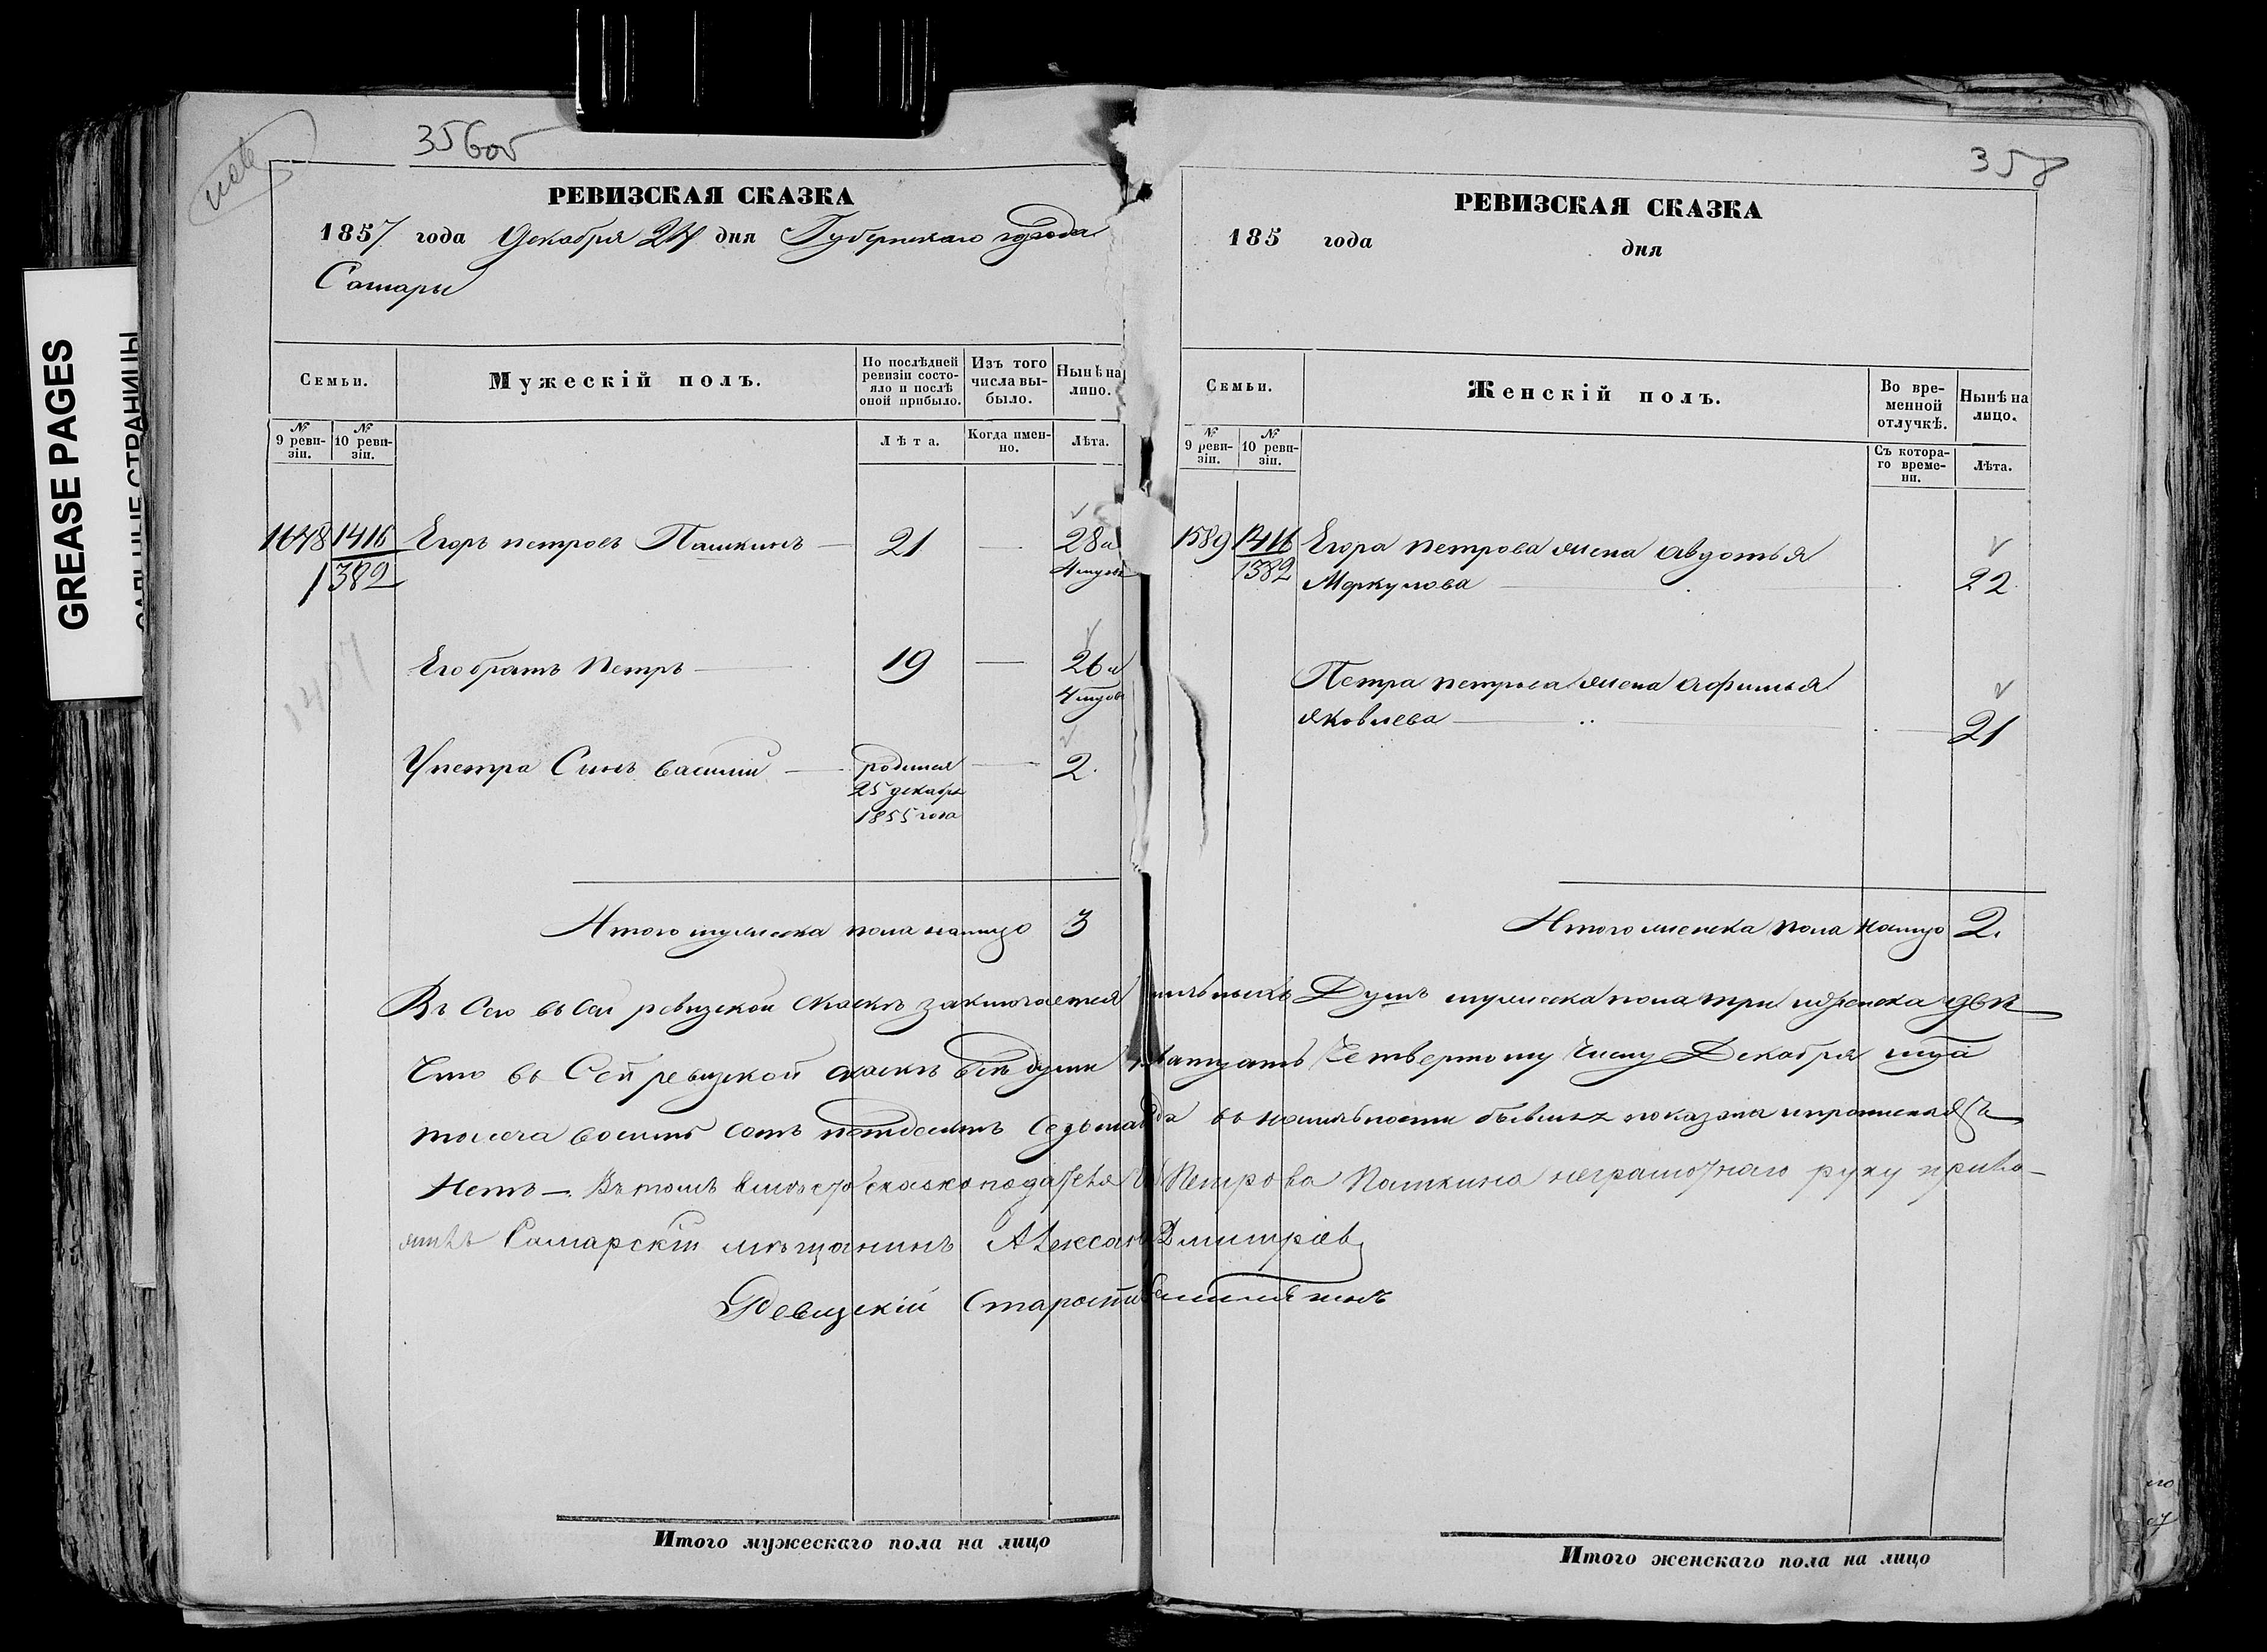 GREASE PAGES
356об
РЕВИЗСКАЯ СКАЗКА
1857 года Декабря 24 дня Губернскаго города
Самары
Семьи.
Мужескій полъ.
По послѣдней ревизіи состояло и послѣ оной прибыло.
Изъ того числа выбыло.
Нынѣ на лицо.
№ 9 ревизіи.
№ 10 ревизіи.
Лѣта.
Когда именно.
Лѣта.
1678 1416 Егоръ петровъ Пашкинъ — 21 — 28 и
1382 4 мѣсяц
Его братъ Петръ — 19 — 26 и
1407 4 мѣсяц
У петра Сынъ василiй — родился — 2.
25 декабря
1855 года
Итого мужеска пола налицо 3
358
РЕВИЗСКАЯ СКАЗКА
185 года дня
Семьи.
Женскій полъ.
Во временной отлучкѣ.
Нынѣ на лицо.
№ 9 ревизіи.
№ 10 ревизіи.
Съ котораго времени.
Лѣта.
1589 1416 Егора петрова жена авдотья
1382 Меркулова — 22
Петра петрова жена афимья
яковлева — 21
Итого женска пола налицо 2.
Въ сей ревизской скаскѣ заключается Душъ мужеска пола три и женска две
Что въ Сей ревизской скаскѣ все души четвертому числу Декабря
тысеча восимь сотъ петдесятъ седьмаго въ наличности бывшия показаны и прописныхъ
Нетъ —. Въ томъ вместо скаскоподателя Петрова Пашкина неграмотнаго руку прило-
жилъ Самарскій мѣщанинъ Александръ Дмитріевъ
Ревизскій Староста
Итого мужескаго пола на лицо
Итого женскаго пола на лицо